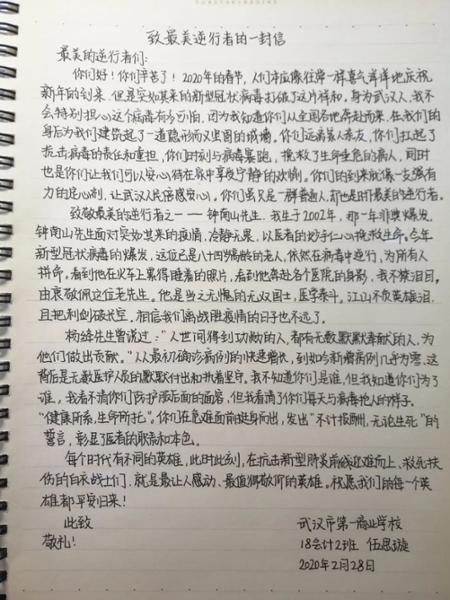 致最美逆行者的一封信
最美的逆行者们：
你们好！你们辛苦了！2020年的春节，人们本应像往常一样喜气洋洋地庆祝
新年的到来，但是突如其来的新型冠状病毒打破了这片祥和。身为武汉人，我不
会特别担心这个病毒有多可怕，因为我知道你们从全国各地奔赴而来，在我们的
身后为我们建筑起了一道隐形而又坚固的城墙。你们远离亲人亲友，你们扛起了
抗击病毒的责任和重担，你们时刻与病毒赛跑，挽救了生命垂危的病人，同时
也是你们让我们可以安心待在家中享受宁静的欢愉。你们的到来就像一支强有
力的定心剂，让武汉人民倍感安心。你们虽只是一群普通人，却也是时下最美的逆行者。
致敬最美的逆行者之一——钟南山先生，我生于2002年，那一年非典爆发，
钟南山先生面对突如其来的疫情，冷静无畏，以医者的妙手仁心挽救生命。今年
新型冠状病毒的爆发，这位已是八十四岁高龄的老人，依然在病毒中逆行，为所有人
拼命。看到他在火车上累得睡着的照片，看到他奔赴各个医院的身影，我不禁泪目。
由衷敬佩这位老先生。他是当之无愧的无双国士，医学泰斗。江山不负英雄泪，
且把利剑破长空，相信我们离战胜疫情的日子也不远了。
杨绛先生曾说过：“人世间得到功勋的人，都有无数默默奉献的人，为
他们做出贡献。”从最初确诊病例的快速增长，到如今新增病例几乎为零，这
背后是无数医护人员的默默付出和执着坚守。我不知道你们是谁，但我知道你们为了
谁，我看不清你们防护服后面的面容，但我看清了你们每天与病毒抢人的样子。
“健康所系，生命所托”。你们在危难面前挺身而出，发出“不计报酬，无论生死”的
誓言，彰显了医者的职责和本色。
每个时代有不同的英雄，此时此刻，在抗击新型肺炎前线迎难而上、救死扶
伤的白衣战士们，就是最让人感动、最值得敬仰的英雄。祝愿我们的每一个英
雄都平安归来！
此致
敬礼！
武汉市第一商业学校
18会计2班 伍思璇
2020年2月28日